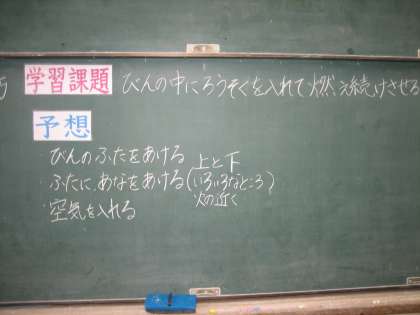 学習課題 びんの中にろうそくを入れて燃え続けさせる
予想
・びんのふたをあける 上と下
・ふたに、あなをあける(いろいろなところ)
火の近く
・空気を入れる